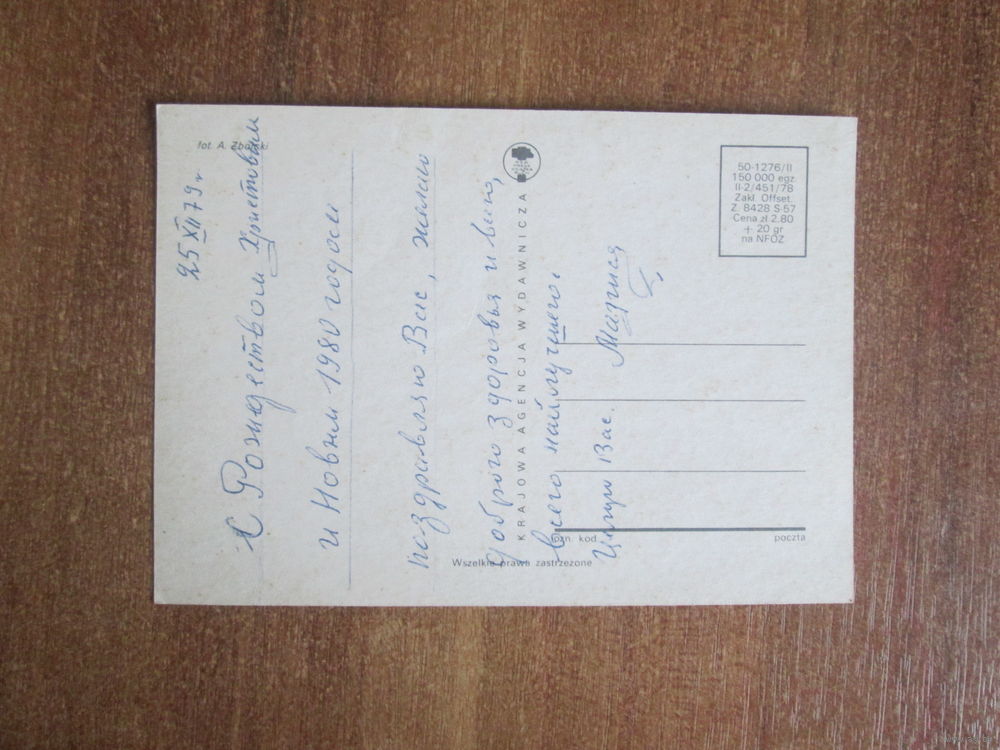 25 XII 79 г
С Рождеством Христовым
и Новым 1980 годом
поздравляю Вас, желаю
доброго здоровья и
всего найлучшего.
Целую Вас. Марися
fot. A.
KRAJOWA AGENCJA WYDAWNICZA
50-1276/II
150 000 egz.
II-2/451/78
Zakł. Offset.
Z. 8428 S-57
Cena zł 2.80
+ 20 gr
na NFOZ
ozn. kod
poczta
Wszelkie prawa zastrzeżone